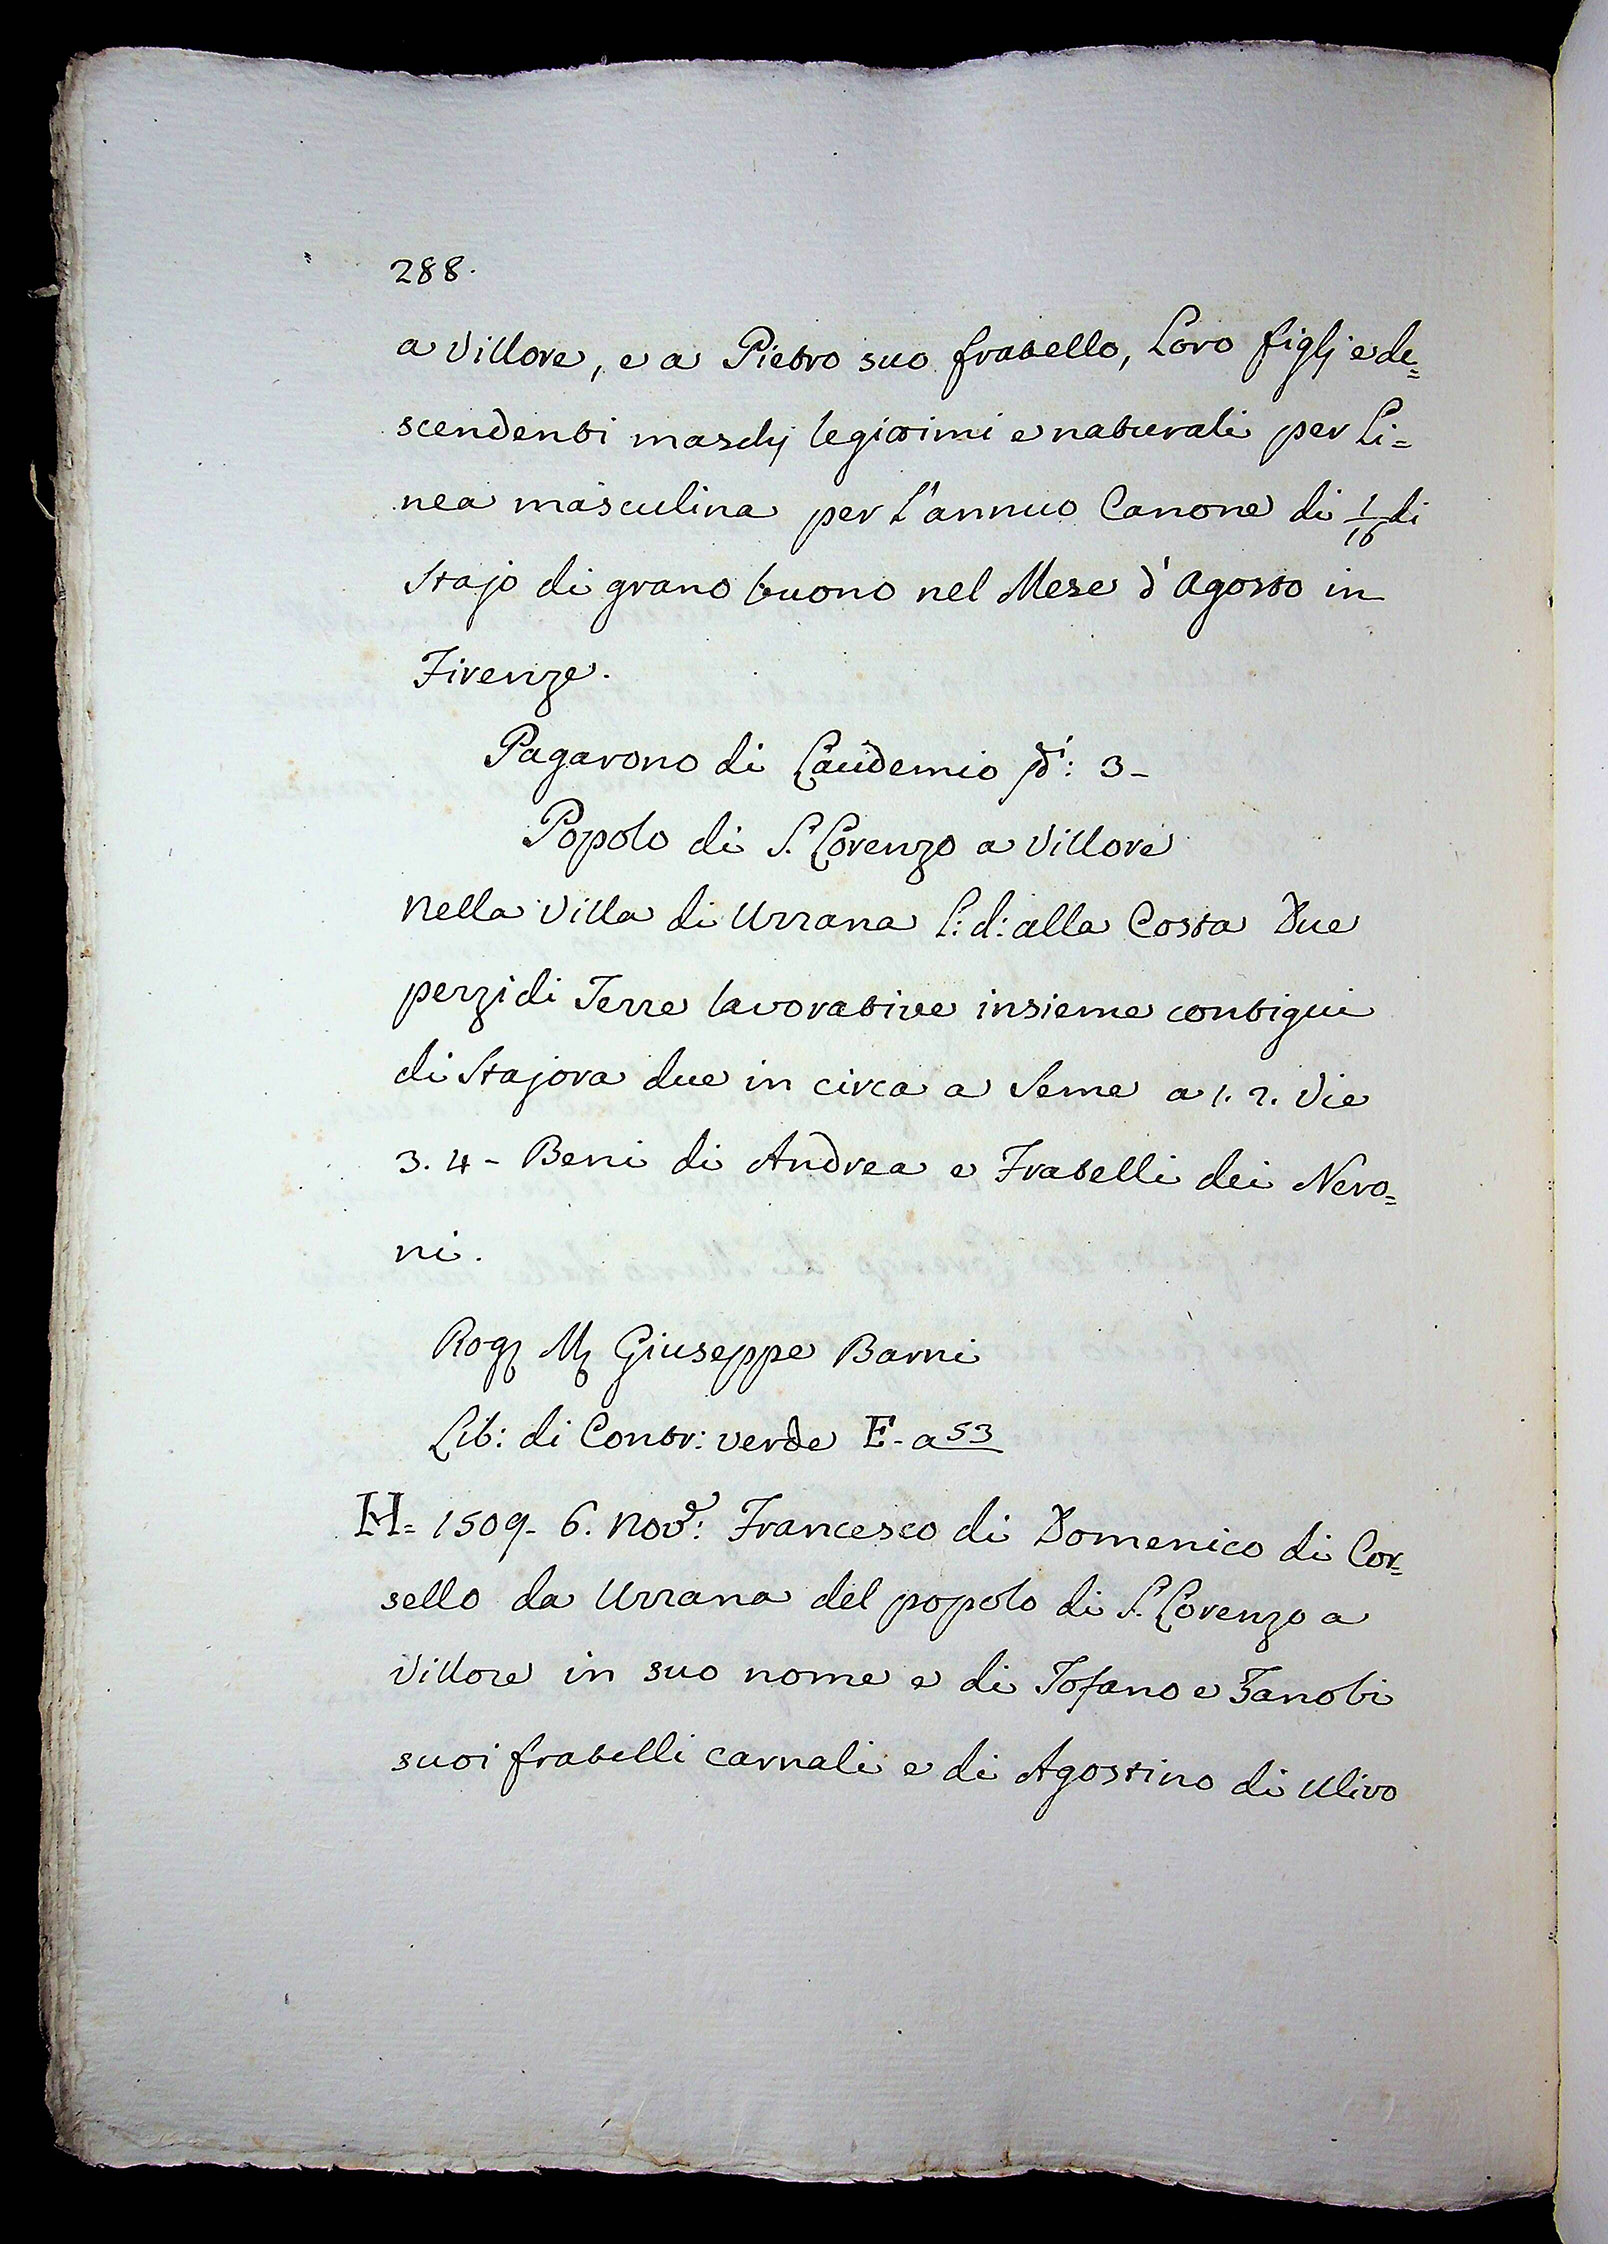 288.
a Villore, e a Pietro suo fratello, Loro figlj e de=
scendenti maschj legittimi e naturali per Li=
nea masculina per L'annuo Canone di 1/16 di
Stajo di grano buono nel Mese d'Agosto in
Firenze.
Pagarono di Laudemio : 3-
Popolo di S. Lorenzo a Villore
nella Villa di Uzzana L: d: alla Costa Due
pezzi di Terre lavorative insieme contigui
di Stajora due in circa a Seme a 1. 2. Vie
3. 4 - Beni di Andrea e Fratelli dei Nero=
ni.
Rog Giuseppe Barni
Lib: di Contr: verde E- a 53
H= 1509- 6. Nov.e: Francesco di Domenico di Cor=
sello da Uzzana del popolo di S. Lorenzo a
Villore in suo nome e di Tofano e Zanobi
suoi fratelli carnali e di Agostino di Ulivo